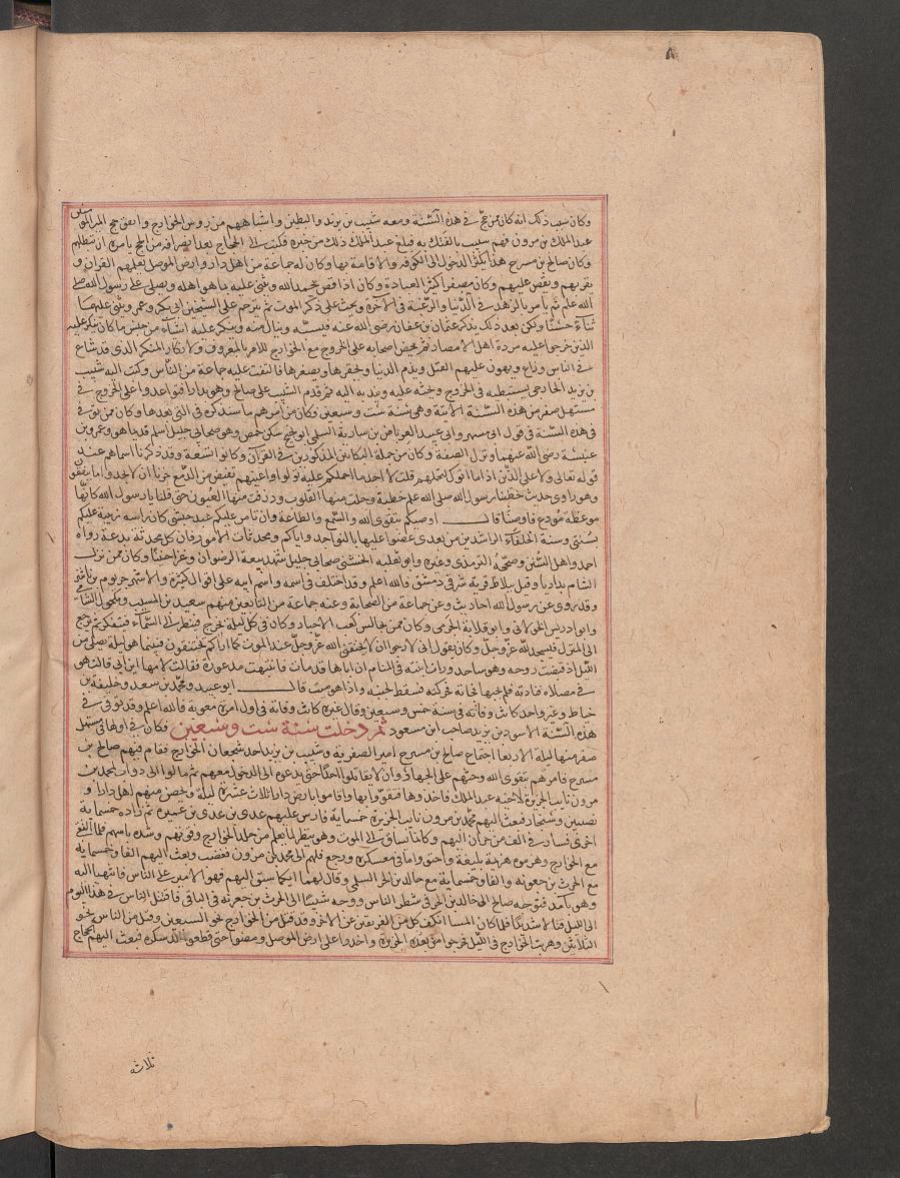 وكان سبب ذلك انه كان ممن حج في هذه السنة ومعه شبيب بن يزيد والبطين واشباههم من رؤس الخوارج واتفق حج امير المومنين
عبد الملك بن مرون فهم شبيب بالفتك به فبلغ عبد الملك ذلك من خبره فكتب الى الحجاج بعد انصرافه من الحج يامره ان يتطلبهم
وكان صالح بن مسرح هذا يكثر الدخول الى الكوفه والاقامة بها وكان له جماعة من اهل دارا وارض الموصل يعلمهم القران و
يقريهم ويقص عليهم وكان مصفرا كثير العبادة وكان اذا قص يحمد الله ويثني عليه بما هو اهله ويصلي على رسول الله صلى
الله علم ثم يامر بالزهد في الدنيا والرغبة في الاخرة ويحث على ذكر الموت ثم يترحم على الشيخين ابي بكر وعمر ويثني عليهما
ثناء حسنا ولكن بعد ذلك يذكر عثمان بن عفان رضي الله عنه فيسبه وينال منه وينكر عليه اشياء من جنس ما كان ينكر عليه
الذين خرجوا عليه من مردة اهل الامصار ثم يحض اصحابه على الخروج مع الخوارج للامر بالمعروف ولانكار المنكر الذي قد شاع
في الناس وذاع ويهون عليهم القتل ويذم الدنيا ويحقرها ويصغرها فالتفت عليه جماعة من الناس وكتب اليه شبيب
بن يزيد الخارجي يستبطيه في الخروج ويحثه عليه ويندبه اليه ثم قدم الشبيب على صالح وهو بدارا فتواعدوا على الخروج في
مستهل صفر من هذه السنة الاتية وهي سنة ست وسبعين فكان من امرهم ما سنذكره في التي بعدها وكان ممن توفي
في هذه السنة في قول ابي مسهر وابي عبيد العرباض بن سارية السلمي ابو نجيح سكن حمص وهو صحابي جليل اسلم قديما هو وعمرو بن
عبسة رضي الله عنهما ونزل الصفة وكان من جملة البكائين المذكورين في القران وكانوا تسعة وقد ذكرنا اسماهم عند
قوله تعالى ولا على الذين اذا ما اتوك لتحملهم قلت لا اجد ما احملكم عليه تولوا واعينهم تفيض من الدمع حزنا ان لا يجدوا ما ينفقو
وهو راوي حديث خطبنا رسول الله صلى الله علم خطبة وجلت منها القلوب وذرفت منها العيون حتى قلنا يا رسول الله كانها
موعظة مودع فاوصنا قال اوصيكم بتقوى الله والسمع والطاعة وان تامر عليكم عبد حبشي كان راسه زبيبة عليكم
بسنتي وسنة الخلفاء الراشدين من بعدي عضوا عليها بالنواجد واياكم ومحدثات الامور فان كل محدثة بدعة رواه
احمد واهل السنن وصححه الترمذي وغيره وابو ثعلبة الخشني صحابي جليل شهد بيعة الرضوان وغزا حنينا وكان ممن نزل
الشام بداريا وقيل ببلاط قرية شرقي دمشق فالله اعلم وقد اختلف في اسمه واسم ابيه على اقوال كثيرة والاشهر جرثوم بن ناشر
وقد روى عن رسول الله احاديث وعن جماعة من الصحابة وعنه جماعة من التابعين منهم سعيد بن المسيب ومكحول الشامي
وابو ادريس الخولاني وابو قلابة الجرمي وكان ممن يجالس كعب الاحبار وكان في كل ليلة يخرج فينظر الى السماء فيتفكر ثم يرجع
الى المنزل فيسجد لله عز وجل وكان يقول اني لارجوا ان لا يخنقني الله عز وجل عند الموت كما اراكم تختنقون فبينما هو ليلة يصلي من
الليل اذ قبضت روحه وهو ساجد ورات ابنته في المنام ان اباها قد مات فانتبهت مذعورة فقالت لامها اين ابي قالت هو
في مصلاه فنادته فلم يجبها فجاته فحركته فسقط لجنبه واذا هو ميت قال ابو عبيد ومحمد بن سعد وخليفة بن
خياط وغير واحد كانت وفاته في سنة خمس وسبعين وقال غيره كانت وفاته في اول امرة معوية فالله اعلم وقد توفي في
هذه السنة الاسود بن يزيد صاحب ابن مسعود ثم دخلت سنة ست وسبعين فكان في اولها في مستهل
صفر منها ليلة الاربعا اجتماع صالح بن مسرح امير الصفرية وشبيب بن يزيد احد شجعان الخوارج فقام فيهم صالح بن
مسرح فامرهم بتقوى الله وحثهم على الجهاد وان لا يقاتلوا احدا حتى يدعوه الى الدخول معهم ثم مالوا الى دواب محمد بن
مرون نايب الجزيرة لاخيه عبد الملك فاخذوها فتقووا بها واقاموا بارض دارا ثلاث عشرة ليلة وتحصن منهم اهل دارا و
نصيبين وسنجار فبعث اليهم محمد بن مرون نايب الجزيرة خمسماية فارس عليهم عدي بن عدي بن عميرة ثم زاده خمسماية
اخرى فسار في الف من حران اليهم وكانما يساق الى الموت وهو ينظر لما يعلم من جلد الخوارج وقوتهم وشدة باسهم فلما التقى
مع الخوارج وهزموه هزيمة بليغة واحتووا ما في معسكره ورجع فلهم الى محمد بن مرون فغضب وبعث اليهم الفا وخمسماية
مع الحرث بن جعونه والفا وخمسماية مع خالد بن الحر السلمي وقال لهما ايكما سبق اليهم فهو الامير على الناس فانتهيا اليه
وهو بآمد فتوجه صالح الى خالد بن الحر في شطر الناس ووجه شبيبا الى الحرث بن جعونة في الباقي فاقتتل الناس في هذا اليوم
الى الليل قتالا شديدا فلما كان المسا انكف كل من الفريقين عن الاخر وقد قتل من الخوارج نحو السبعين وقتل من الناس نحو
الثلاثين وهربت الخوارج في الليل فخرجوا من الجزيرة واخذوا على ارض الموصل ومضوا حتى قطعوا الدسكره فبعث اليهم الحجاج
ثلاثة